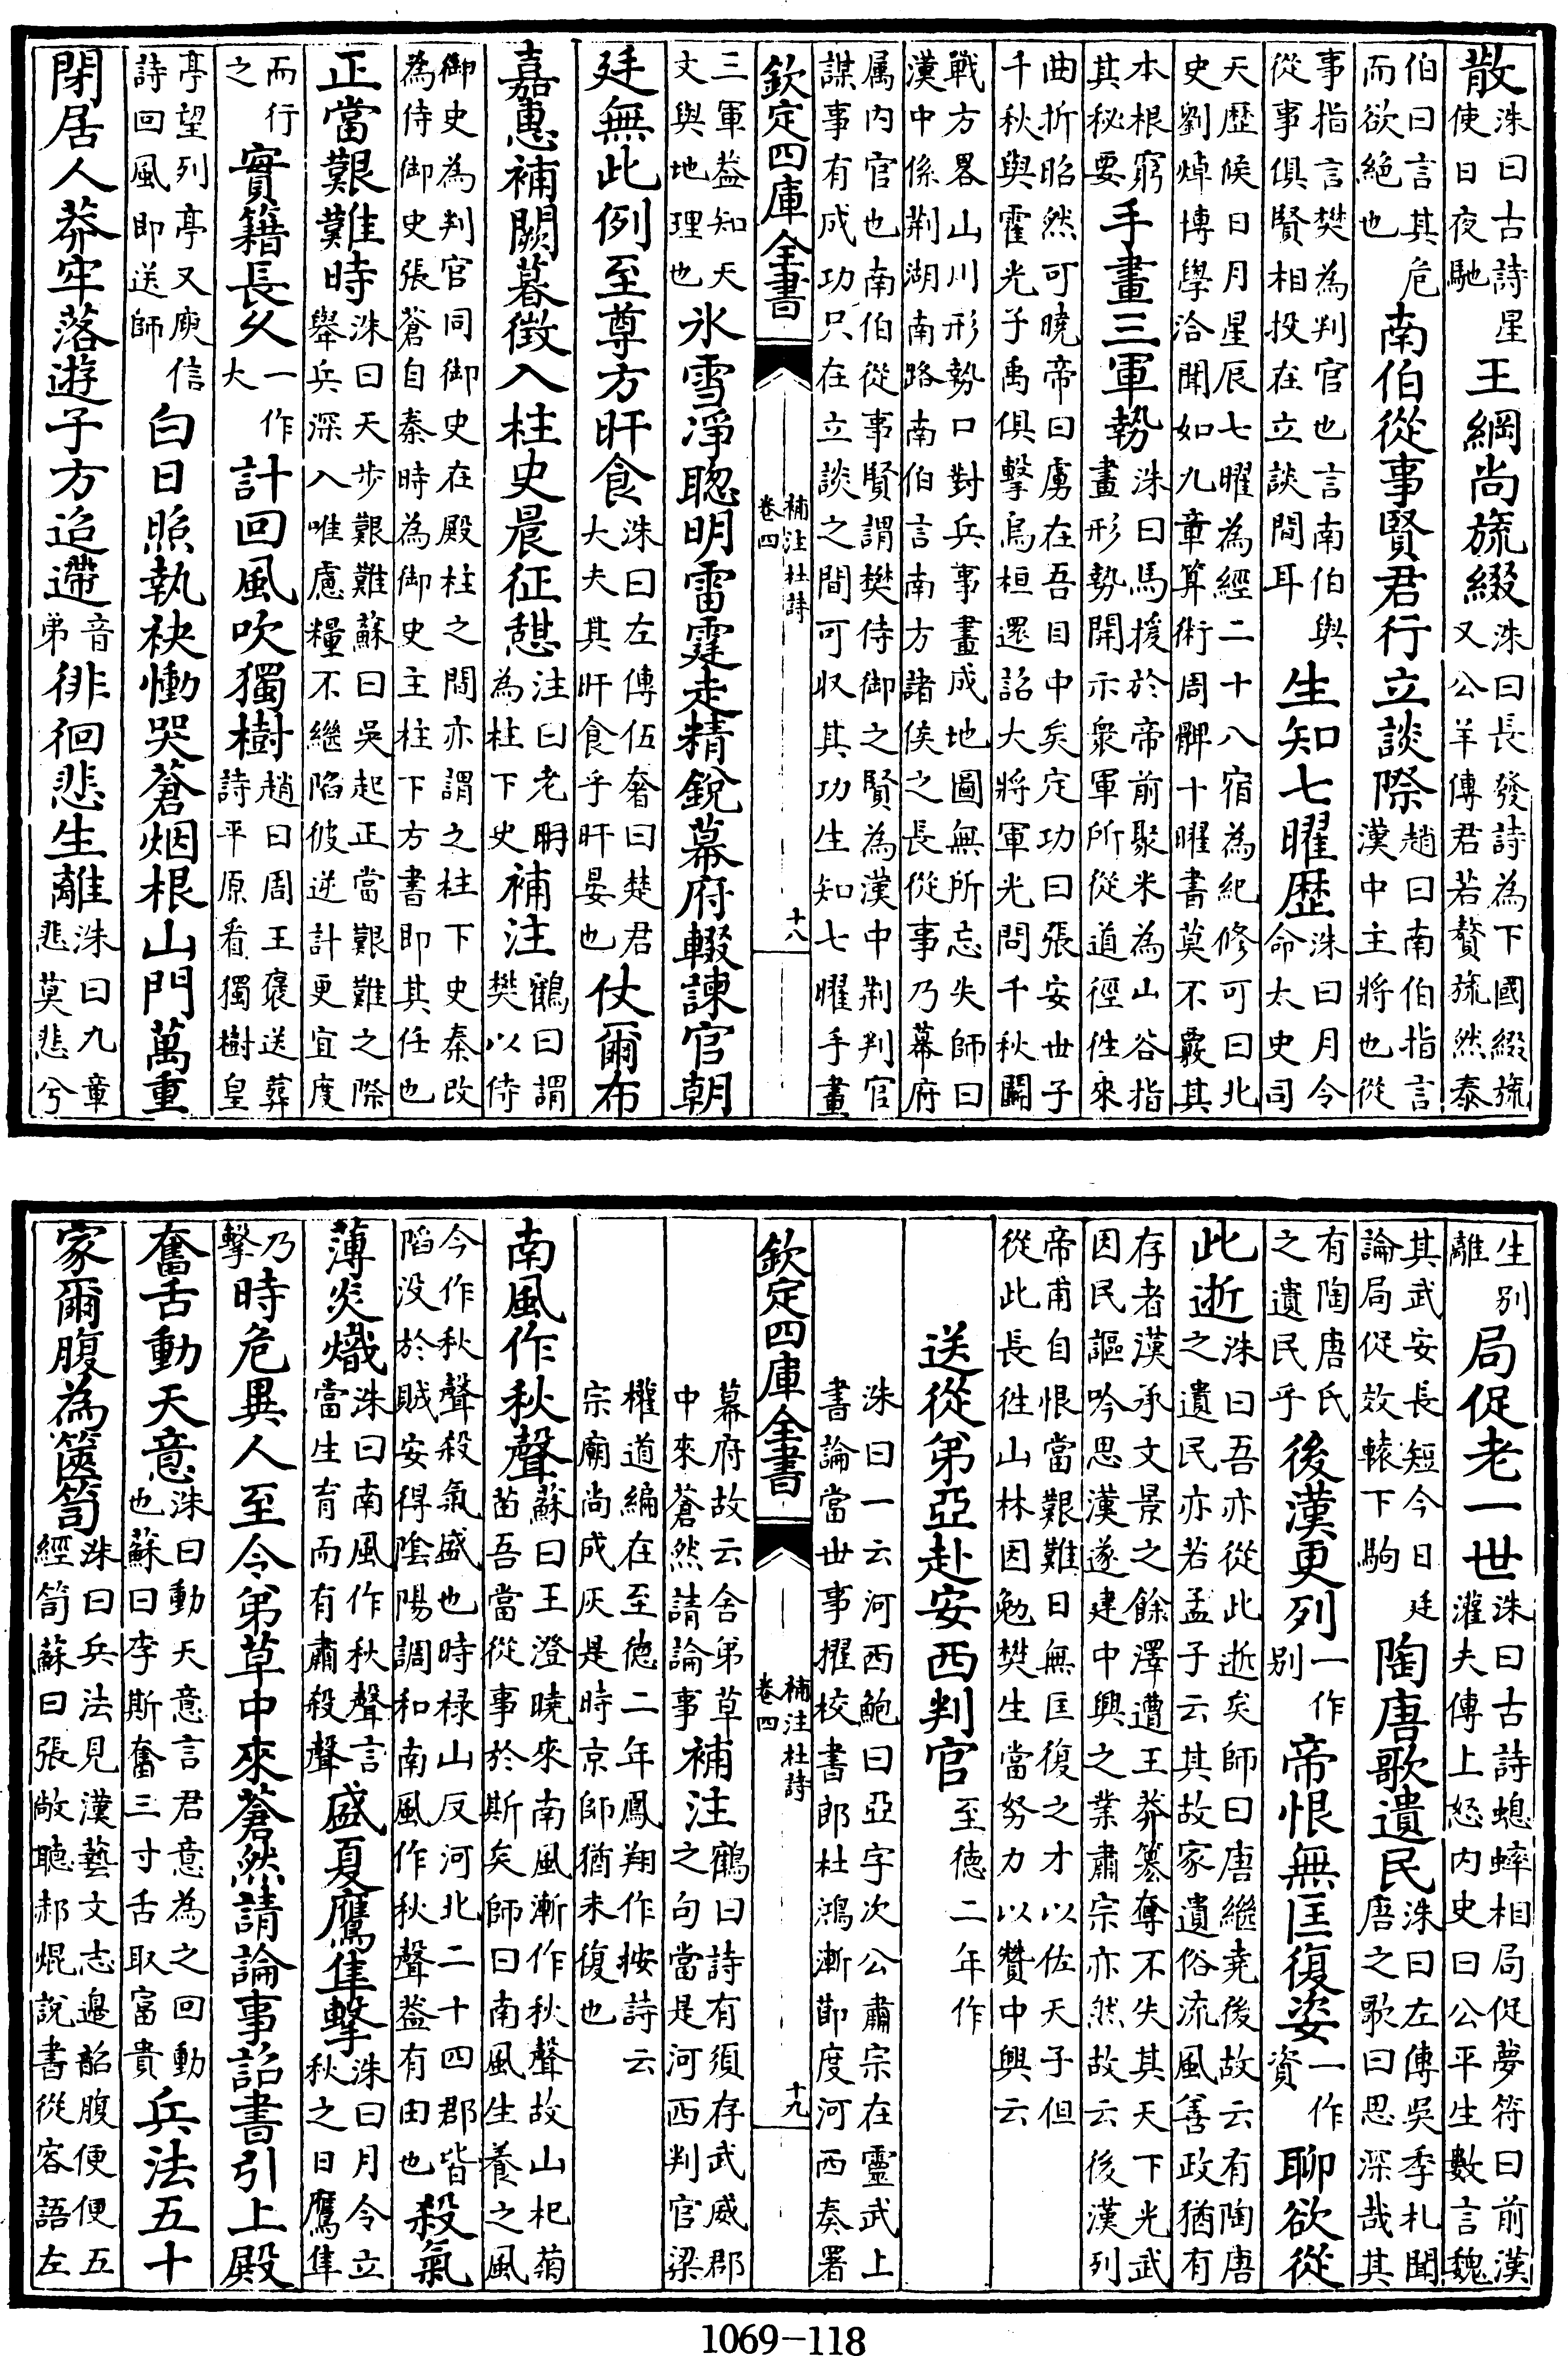 散洙曰古詩星使日夜馳王綱尚旒綴洙曰長發詩為下國綴旒又公羊傳君若贅旒然泰
伯曰言其危而欲絶也南伯從事賢君行立談際趙曰南伯指言漢中主將也從
事指言樊為判官也言南伯與從事俱賢相投在立談間耳生知七曜歴洙曰月令命太史司
天歴候日月星辰七曜為經二十八宿為紀修可曰北史劉焯博學洽聞如九章算術周髀十曜書莫不覈其
本根窮其秘要手畫三軍勢洙曰馬援於帝前聚米為山谷指畫形勢開示衆軍所從道徑徃來
曲折昭然可曉帝曰虜在吾目中矣定功曰張安世子千秋與霍光子禹俱擊烏桓還詔大將軍光問千秋鬭
戰方畧山川形勢口對兵事畫成地圖無所忘失師曰漢中係荆湖南路南伯言南方諸侯之長從事乃幕府
属内官也南伯從事賢謂樊侍御之賢為漢中荆判官謀事有成功只在立談之間可収其功生知七曜手畫
欽定四庫全書 補注杜詩 卷四 十八
三軍葢知天文與地理也氷雪淨聦明雷霆走精銳幕府輟諫官朝
廷無此例至尊方旰食洙曰左傳伍奢曰楚君大夫其旰食乎旰晏也仗爾布
嘉惠補闕暮徴入柱史晨征憇注曰老聃為柱下史補注鶴曰謂樊以侍
御史為判官同御史在殿柱之間亦謂之柱下史秦改為侍御史張蒼自秦時為御史主柱下方書即其任也
正當艱難時洙曰天步艱難蘇曰吳起正當艱難之際舉兵深入唯慮糧不繼陷彼逆計更宜度
而行之實籍長乆一作大計回風吹獨樹趙曰周王褒送葬詩平原看獨樹皇
亭望列亭又庾信詩回風即送師白日照執袂慟哭蒼烟根山門萬重
閉居人莽牢落遊子方迨遰音弟徘徊悲生離洙曰九章悲莫悲兮
生别離局促老一世洙曰古詩蟋蟀相局促夢符曰前漢灌夫傳上怒内史曰公平生數言魏
其武安長短今日廷論局促效轅下駒陶唐歌遺民洙曰左傳吳季札聞唐之歌曰思深哉其
有陶唐氏之遺民乎後漢更列一作别帝恨無匡復姿一作資聊欲從
此逝洙曰吾亦從此逝矣師曰唐繼堯後故云有陶唐之遺民亦若孟子云其故家遺俗流風善政猶有
存者漢承文景之餘澤遭王莽簒奪不失其天下光武因民謳吟思漢遂建中興之業肅宗亦然故云後漢列
帝甫自恨當艱難日無匡復之才以佐天子但從此長徃山林因勉樊生當努力以贊中興云
送從弟亞赴安西判官至徳二年作
洙曰一云河西鮑曰亞字次公肅宗在靈武上書論當世事擢校書郎杜鴻漸節度河西奏署
欽定四庫全書 補注杜詩 卷四 十九
幕府故云舍弟草中來蒼然請論事補注鶴曰詩有須存武威郡之句當是河西判官梁
權道編在至徳二年鳳翔作按詩云宗廟尚成灰是時京師猶未復也
南風作秋聲蘇曰王澄曉來南風漸作秋聲故山杞菊苗吾當從事於斯矣師曰南風生養之風
今作秋聲殺氣盛也時禄山反河北二十四郡皆陷没於賊安得陰陽調和南風作秋聲益有由也殺氣
薄炎熾洙曰南風作秋聲言當生育而有肅殺聲盛夏鷹隼擊洙曰月令立秋之日鷹隼
乃擊時危異人至令弟草中來蒼然請論事詔書引上殿
奮舌動天意洙曰動天意言君意為之回動也蘇曰李斯奮三寸舌取富貴兵法五十
家爾腹為篋笥洙曰兵法見漢藝文志邉韶腹便便五經笥蘇曰張敞聴郝焜說書從容語左
1069-118